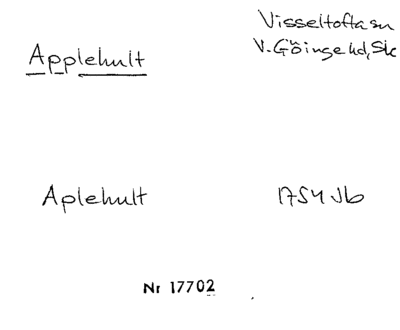 Applehult
Visseltofta sn
V. Göinge hd, Sk
Aplehult
1754 Jb
Nr 17702